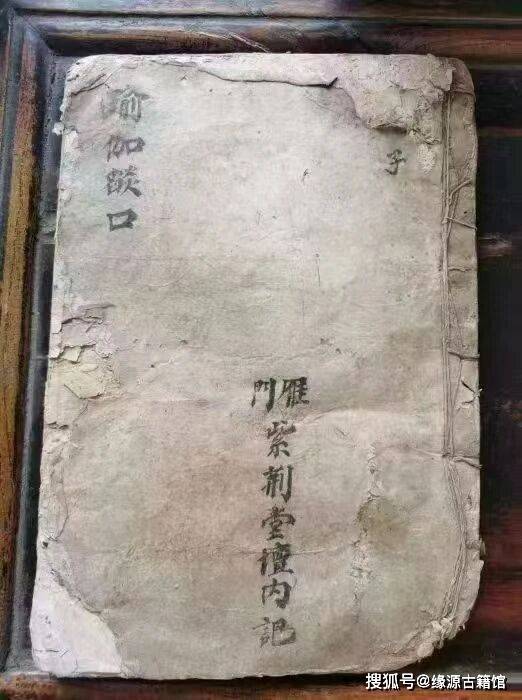 瑜伽燄口
子
雁門
紫荆堂壇内記
搜狐号@缘源古籍馆